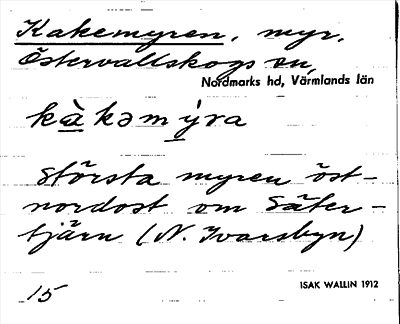 Kakemyren, myr,
Östervallskogs sn,
Nordmarks hd, Värmlands län
kàkəmýra
största myren öst-
nordost om Säter-
tjärn (N. Ivarsbyn)
15
ISAK WALLIN 1912